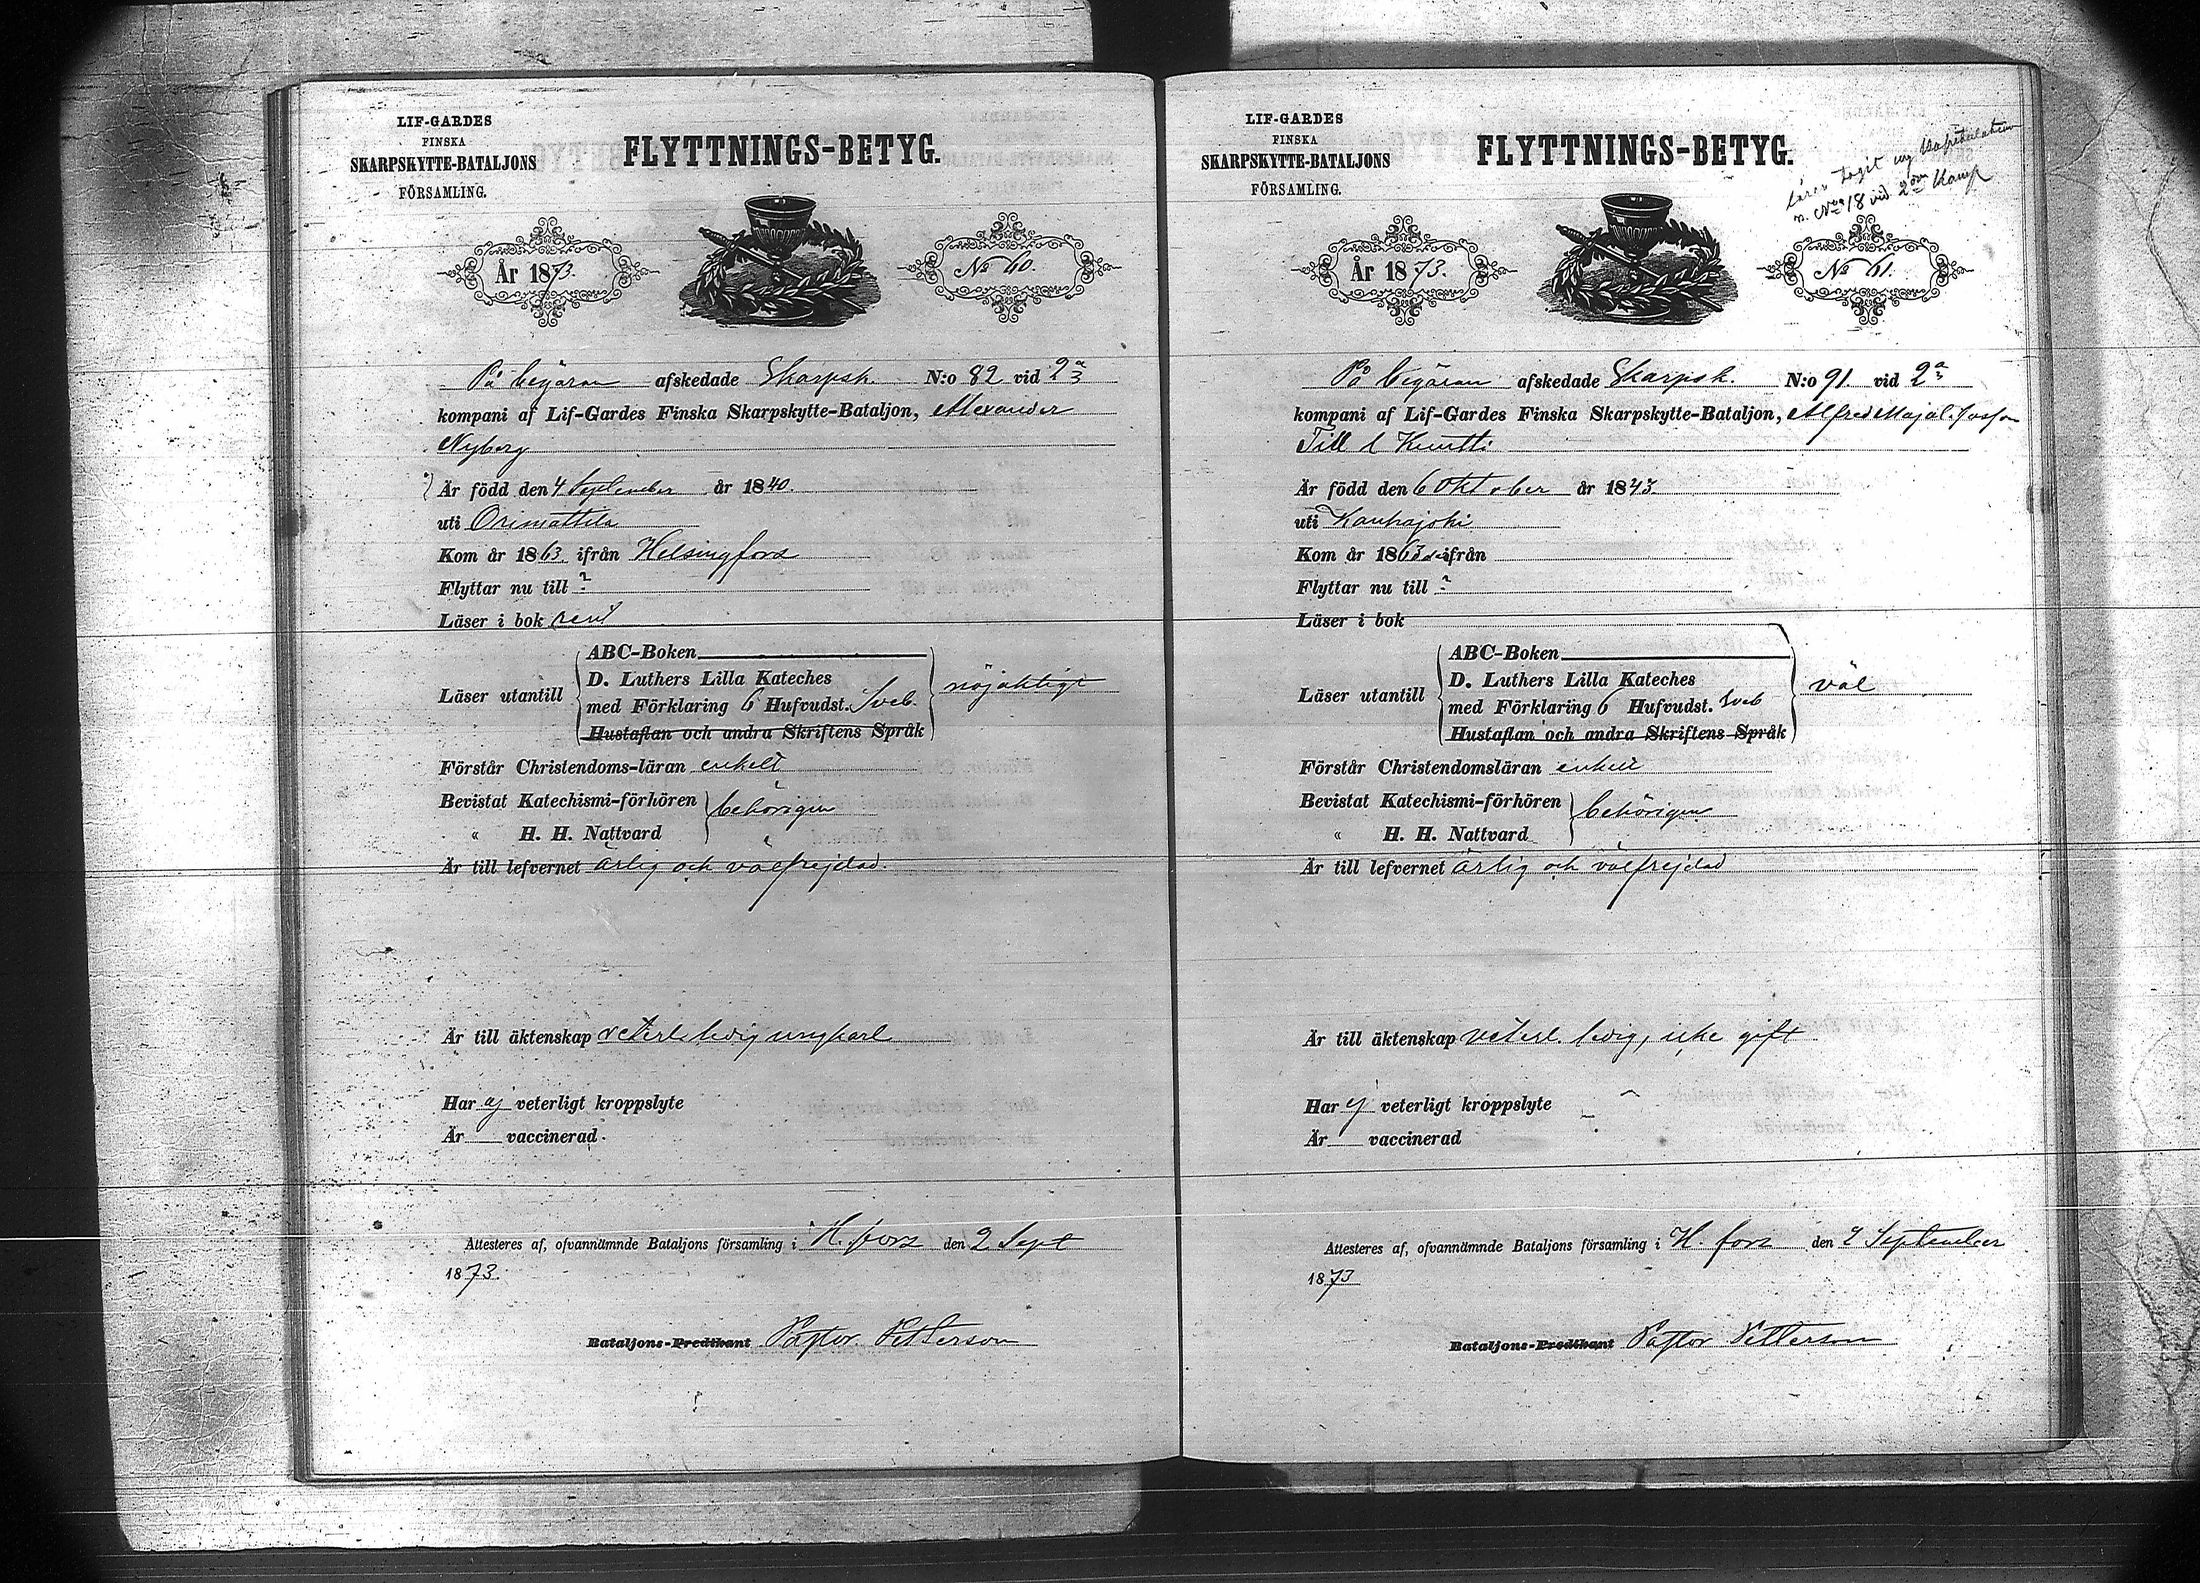 LIF-GARDES
FINSKA
SKARPSKYTTE-BATALJONS
FÖRSAMLING.
FLYTTNINGS-BETYG.
År 1873.
No 60.
På begäran afskedade Skarpsk. N:o 82 vid 2a
kompani af Lif-Gardes Finska Skarpskytte-Bataljon, Alexander
Nyberg
Är född den 4 September år 1840.
uti Orimattila
Kom år 1863 ifrån Helsingfors
Flyttar nu till ?
Läser i bok rent
ABC-Boken
Läser utantill
D. Luthers Lilla Kateches
med Förklaring 6 Hufvudst. Sveb. nöjaktigt
Hustaflan och andra Skriftens Språk
Förstår Christendoms-läran enkelt
Bevistat Katechismi-förhören behörigen
« H. H. Nattvard
Är till lefvernet ärlig och välfrejdad.
Är till äktenskap veterl. ledig ungkarl
Har ej veterligt kroppslyte
Är vaccinerad
Attesteres af, ofvannämnde Bataljons församling i H. fors den 2 Sept
1873.
Bataljons-Predikant Pastor Petterson
LIF-GARDES
FINSKA
SKARPSKYTTE-BATALJONS
FÖRSAMLING.
FLYTTNINGS-BETYG.
tagit ny Kapitulation
18 vid 2dra Komp
År 1873.
No 61.
På begäran afskedade Skarpsk. N:o 91. vid 2a
kompani af Lif-Gardes Finska Skarpskytte-Bataljon, Alfred
Är född den 6 Oktober år 1843.
uti Kauhajoki
Kom år 1863 ifrån
Flyttar nu till ?
Läser i bok
ABC-Boken
Läser utantill
D. Luthers Lilla Kateches
med Förklaring 6 Hufvudst. Sveb väl
Hustaflan och andra Skriftens Språk
Förstår Christendomsläran enkelt
Bevistat Katechismi-förhören behörigen
« H. H. Nattvard
Är till lefvernet ärlig och välfrejdad
Är till äktenskap veterl. ledig, icke gift
Har ej veterligt kroppslyte
Är vaccinerad
Attesteres af, ofvannämnde Bataljons församling i H. fors den 2 September
1873
Bataljons-Predikant Pastor Petterson